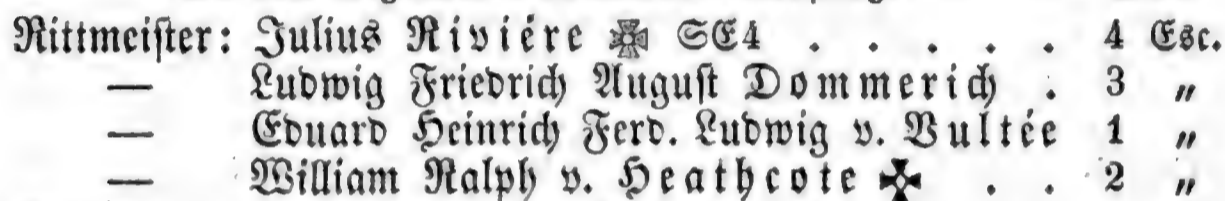 Rittmeister: Julius Riviére SE4 . . . . . 4 Esc.
— Ludwig Friedrich August Dommerich . 3 „
— Eduard Heinrich Ferd. Ludwig v. Bultée 1 „
— William Ralph v. Heathcote . . 2 „